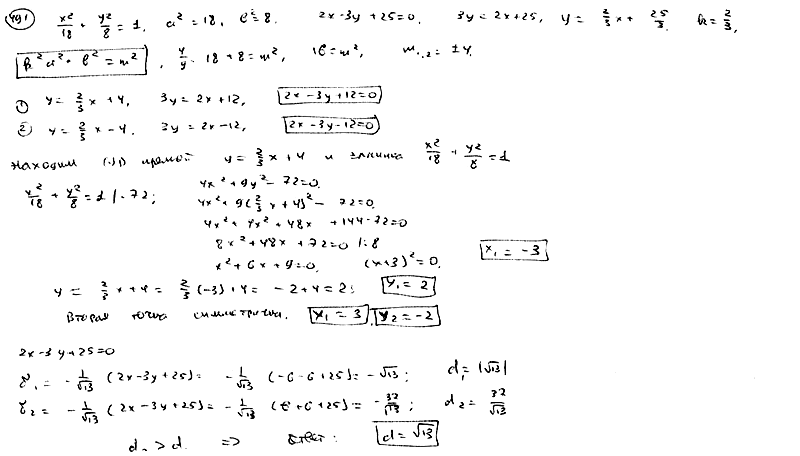 491 x²/18 + y²/8 = 1, a² = 18, b² = 8. 2x-3y+25=0. 3y = 2x+25, y = 2/3 x + 25/3. k = 2/3,
k²a² + b² = m², 4/9 · 18 + 8 = m², 16 = m², m₁,₂ = ±4.
① y = 2/3 x + 4, 3y = 2x+12, 2x-3y+12=0
② y = 2/3 x - 4. 3y = 2x-12, 2x-3y-12=0
Находим прямой y = 2/3 x + 4 и эллипса x²/18 + y²/8 = 1
x²/18 + y²/8 = 1 |·72; 4x² + 9y² - 72=0.
4x² + 9(2/3 x + 4)² - 72=0.
4x² + 4x² + 48x + 144-72=0
8x² + 48x + 72=0 |:8
x² + 6x + 9=0, (x+3)² = 0. x₁ = -3
y = 2/3 x + 4 = 2/3 (-3) + 4 = -2+4 = 2; y₁ = 2
Вторая точка симметрична. x₁ = 3, y₂ = -2
2x-3y+25=0
δ₁ = -1/√13 (2x-3y+25) = -1/√13 (-6-6+25) = -√13; d₁ = |√13|
δ₂ = -1/√13 (2x-3y+25) = -1/√13 (6+6+25) = -37/√13; d₂ = 37/√13
d₂ > d. => Ответ: d = √13